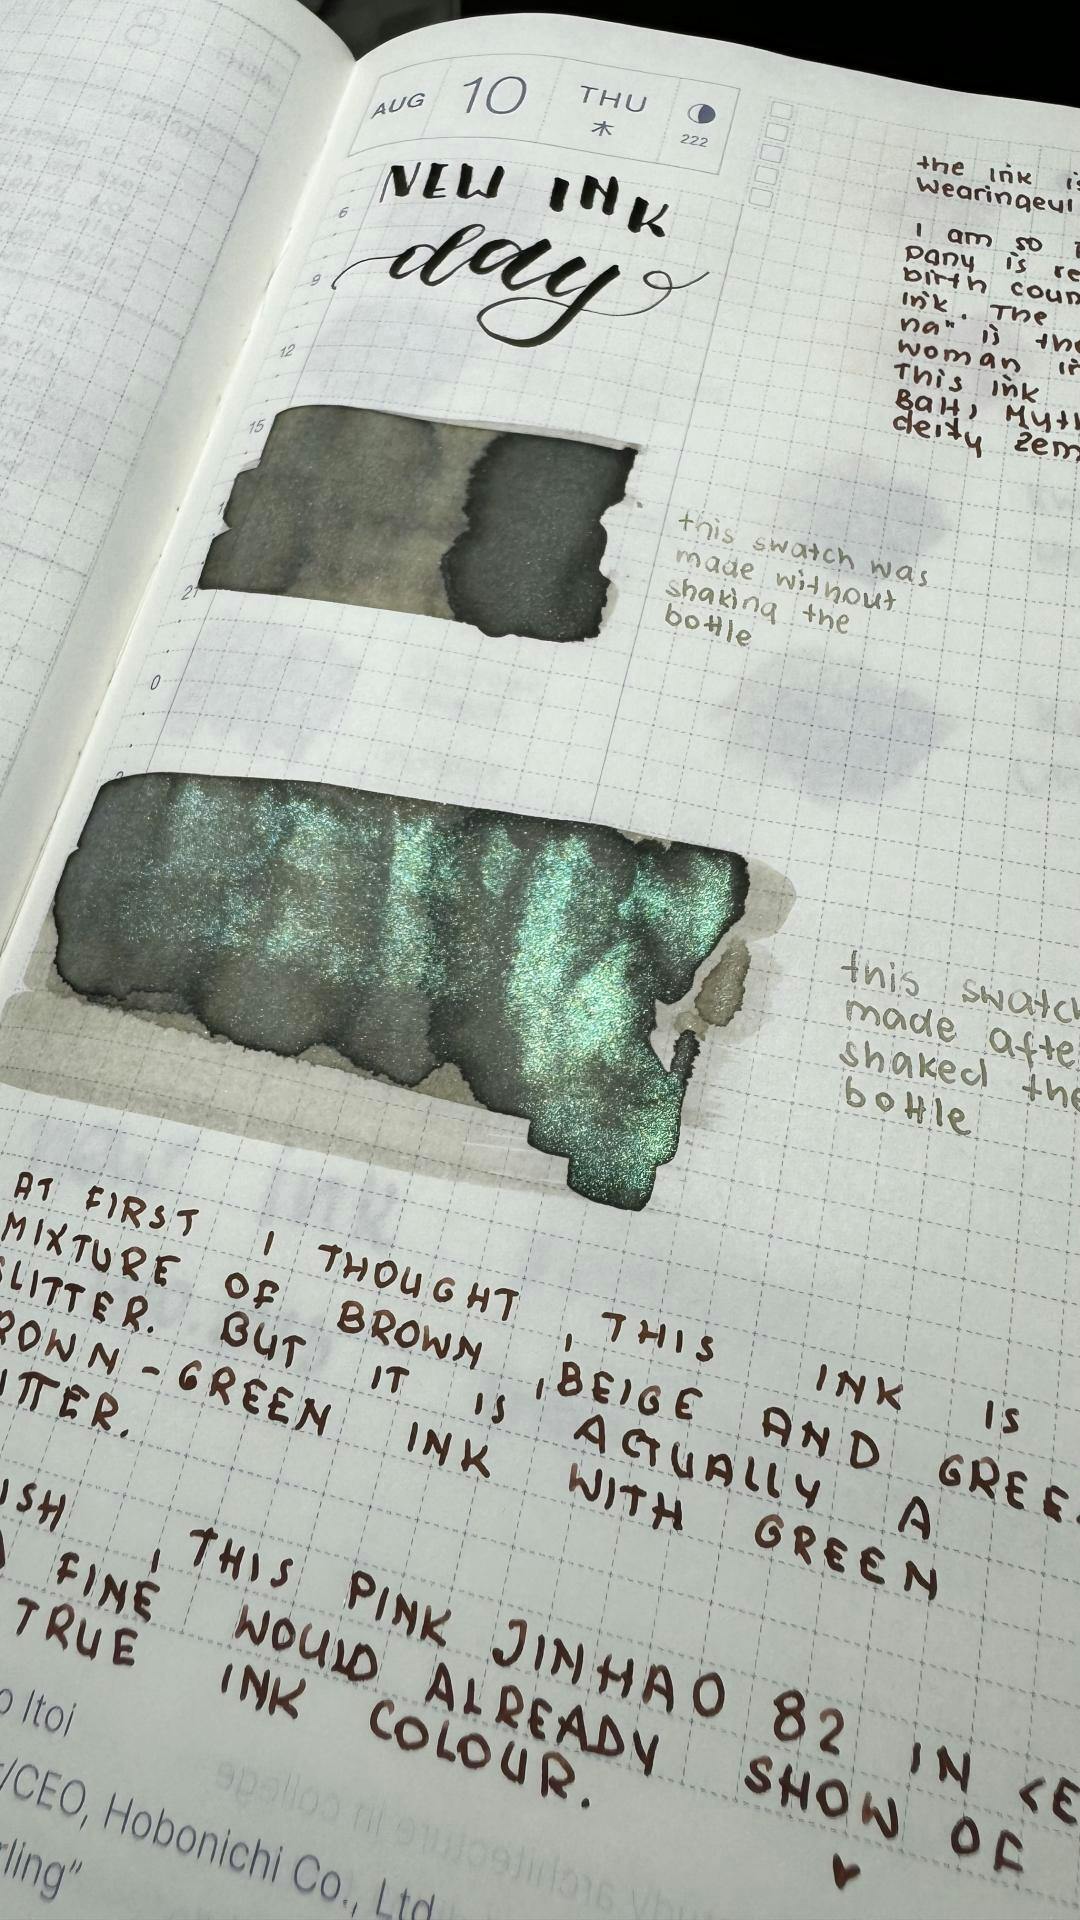 AUG 10 THU
木 222
NEW INK
day
6
9
12
15
21
0
the ink is
I am so
pany is re
birth coun
ink. The
na" is the
woman
This ink
deity Zem
this swatch was
made without
shaking the
bottle
this swatch
made afte
shaked the
bottle
AT FIRST I THOUGHT, THIS INK IS
MIXTURE OF BROWN, BEIGE AND GREE
LITTER. BUT IT IS ACTUALLY A
ROWN-GREEN INK WITH GREEN
ITTER.
ISH, THIS PINK JINHAO 82 IN
FINE WOULD ALREADY SHOW OF
TRUE INK COLOUR.
o Itoi
/CEO, Hobonichi Co., Ltd.
rling"